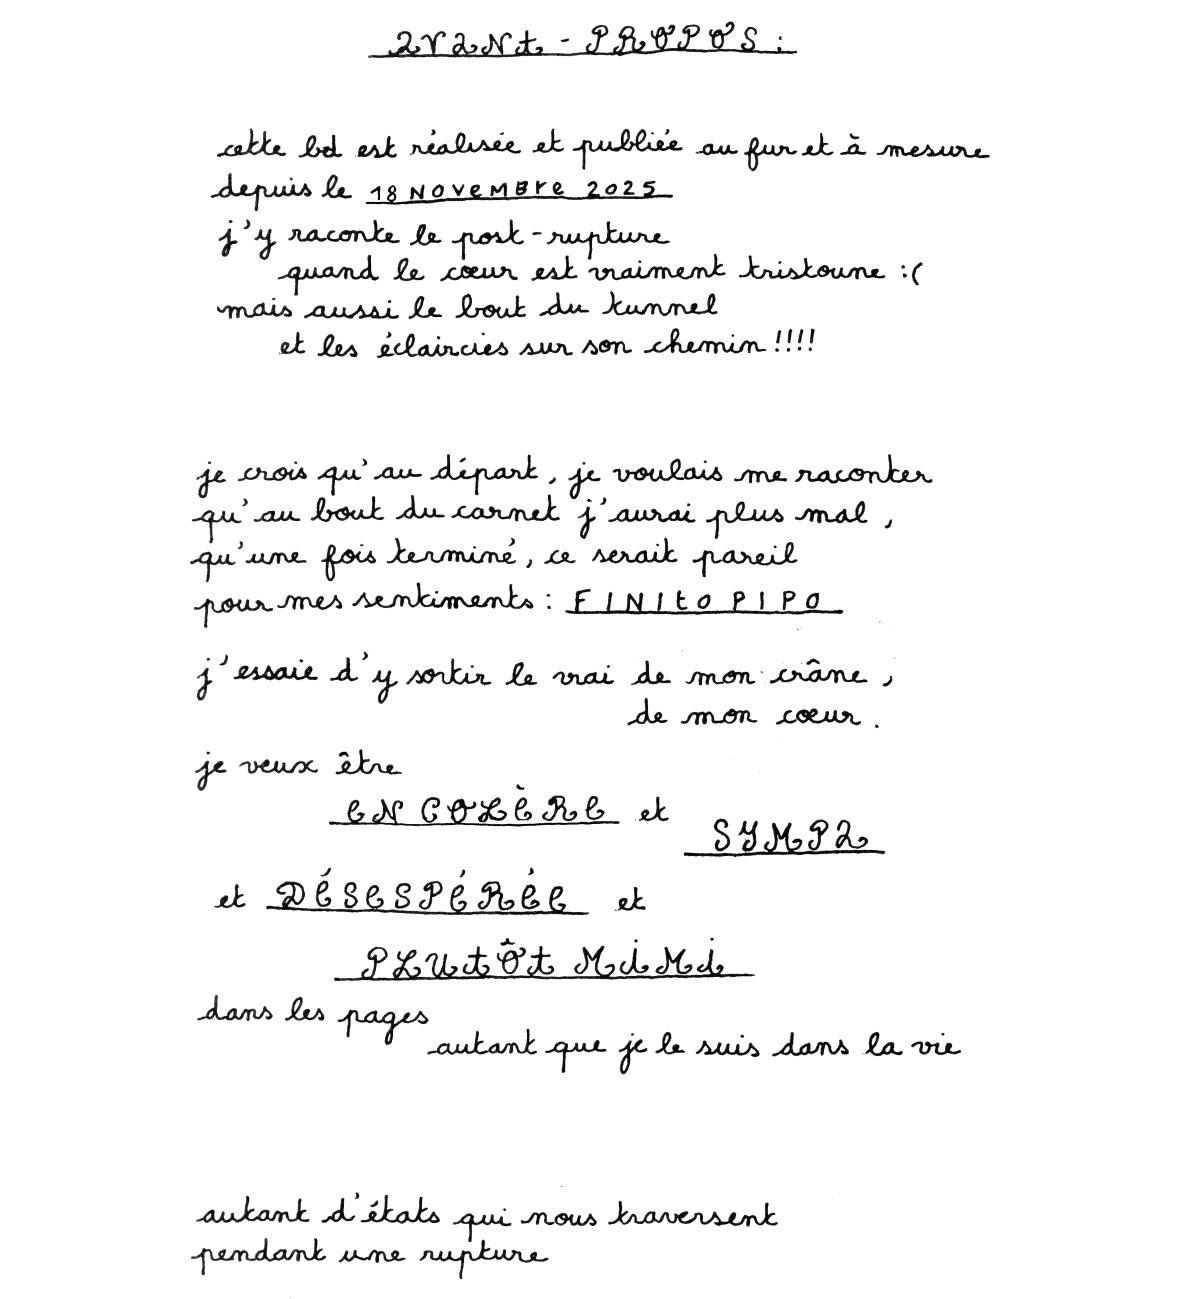 AVANT-PROPOS :
cette bd est réalisée et publiée au fur et à mesure
depuis le 18 NOVEMBRE 2025
j'y raconte le post-rupture
quand le cœur est vraiment tristoune :(
mais aussi le bout du tunnel
et les éclaircies sur son chemin !!!!
je crois qu'au départ, je voulais me raconter
qu'au bout du carnet j'aurai plus mal,
qu'une fois terminé, ce serait pareil
pour mes sentiments : FINITO PIPO
j'essaie d'y sortir le vrai de mon crâne,
de mon cœur.
je veux être
EN COLÈRE et
SYMPA
et DÉSESPÉRÉE et
PLUTÔT MiMi
dans les pages
autant que je le suis dans la vie
autant d'états qui nous traversent
pendant une rupture